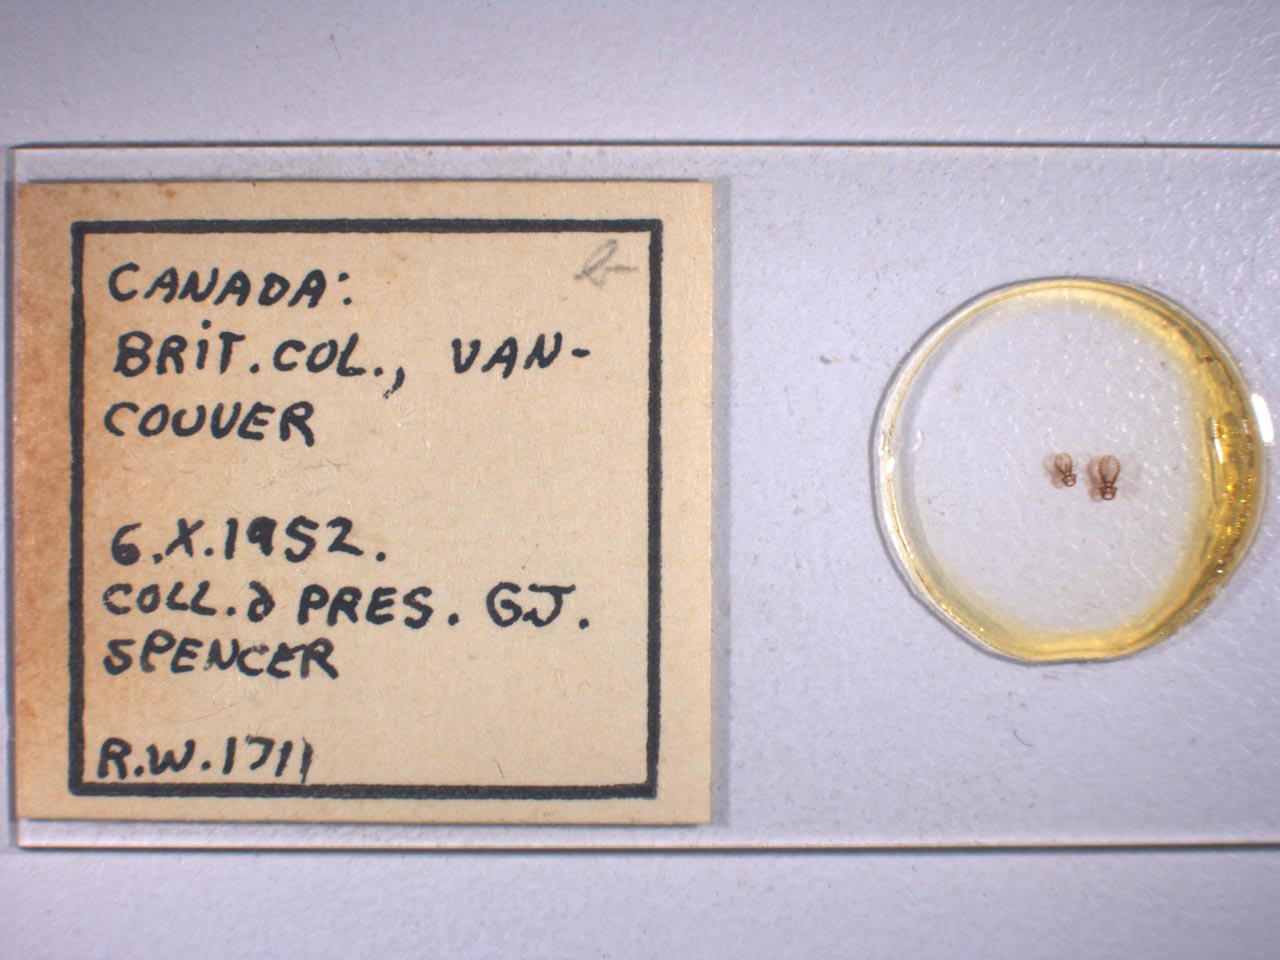 CANADA:
BRIT. COL., VAN-
COUVER
6.X.1952.
COLL. & PRES. GJ.
SPENCER
R.W. 1711